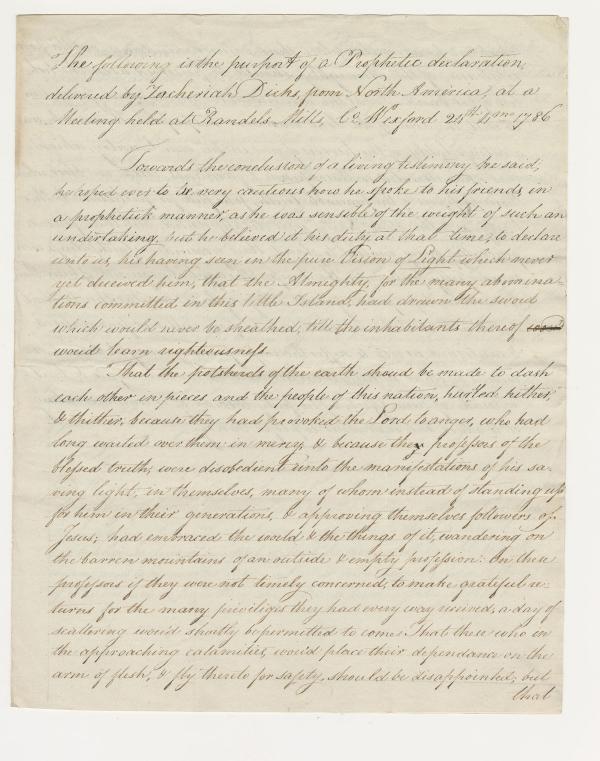 The following is the purport of a Prophetic declaration,
delivered by Zacheriah Dicks, from North America, at a
Meeting held at Randels-Mills, Co. Wexford 24th 4mo 1786
Towards the conclusion of a living testimony he said,
he hoped ever to be very cautious how he spoke to his friends, in
a prophetick manner, as he was sensible of the weight of such an
undertaking, but he believed it his duty at that time, to declare
unto us, his having seen in the pure Vision of Light which never
yet deceived him, that the Almighty, for the many abomina-
tions committed in this little Island, had drawn the sword
which would never be sheathed, till the inhabitants thereof
wou'd learn righteousness.
That the potsherds of the earth shou'd be made to dash
each other in pieces and the people of this nation, hurl'ed hither,
& thither, because they had provoked the Lord to anger, who had
long waited over them in mercy, & because they professors of the
blessed truth, were disobedient unto the manifestations of his sa-
ving light, in themselves, many of whom instead of standing up
for him in their generations, & approving themselves followers of
Jesus; had embraced the world & the things of it, wandering on
the barren mountains of an outside & empty profession: On these
professors if they were not timely concerned, to make grateful re-
turns for the many priviliges they had every way received, a day of
scattering wou'd shortly be permitted to come: That those who in
the approaching calamities, wou'd place their dependance on the
arm of flesh, & fly thereto for safety, should be disappointed; but
that